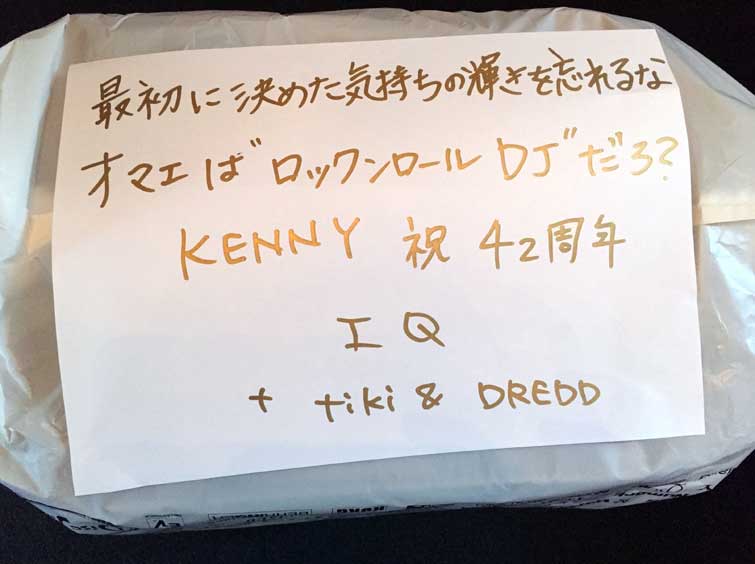 最初に決めた気持ちの輝きを忘れるな
オマエは"ロックンロールDJ"だろ?
KENNY 祝 42周年
IQ
+ tiki & DREDD